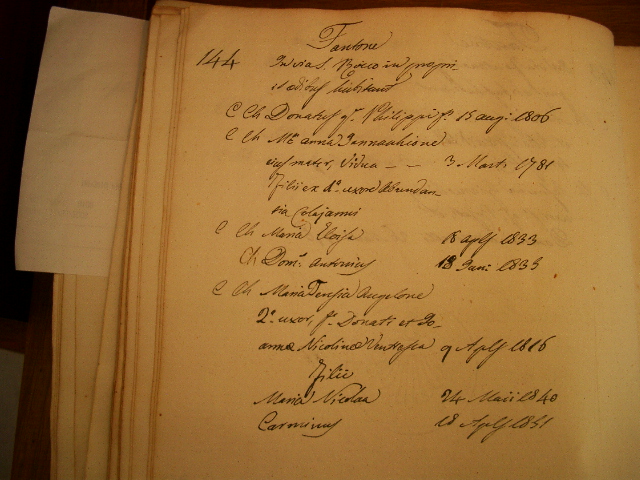 Fantone
144 In via S. Rocco in propri-
is ædibus habitant
C Ch Donatus q.m Philippi f. 15 aug: 1806
C Ch M.a Anna Iannacchione
ejus mater, vidua - - 3 Mart: 1781
Filii ex 1.a uxore Abundan-
tia Colajanni
C Ch Maria Eloisa 18 aplis 1833
Ch Dom.s Antonius 13 Juni: 1835
C Ch Maria Teresia Angelone
2.a uxor f. Donati et Jo-
annæ Nicolinæ Ventresca 9 Aplis 1816
Filii
Maria Nicolaa 24 Maii 1840
Carminus 18 Aplis 1841